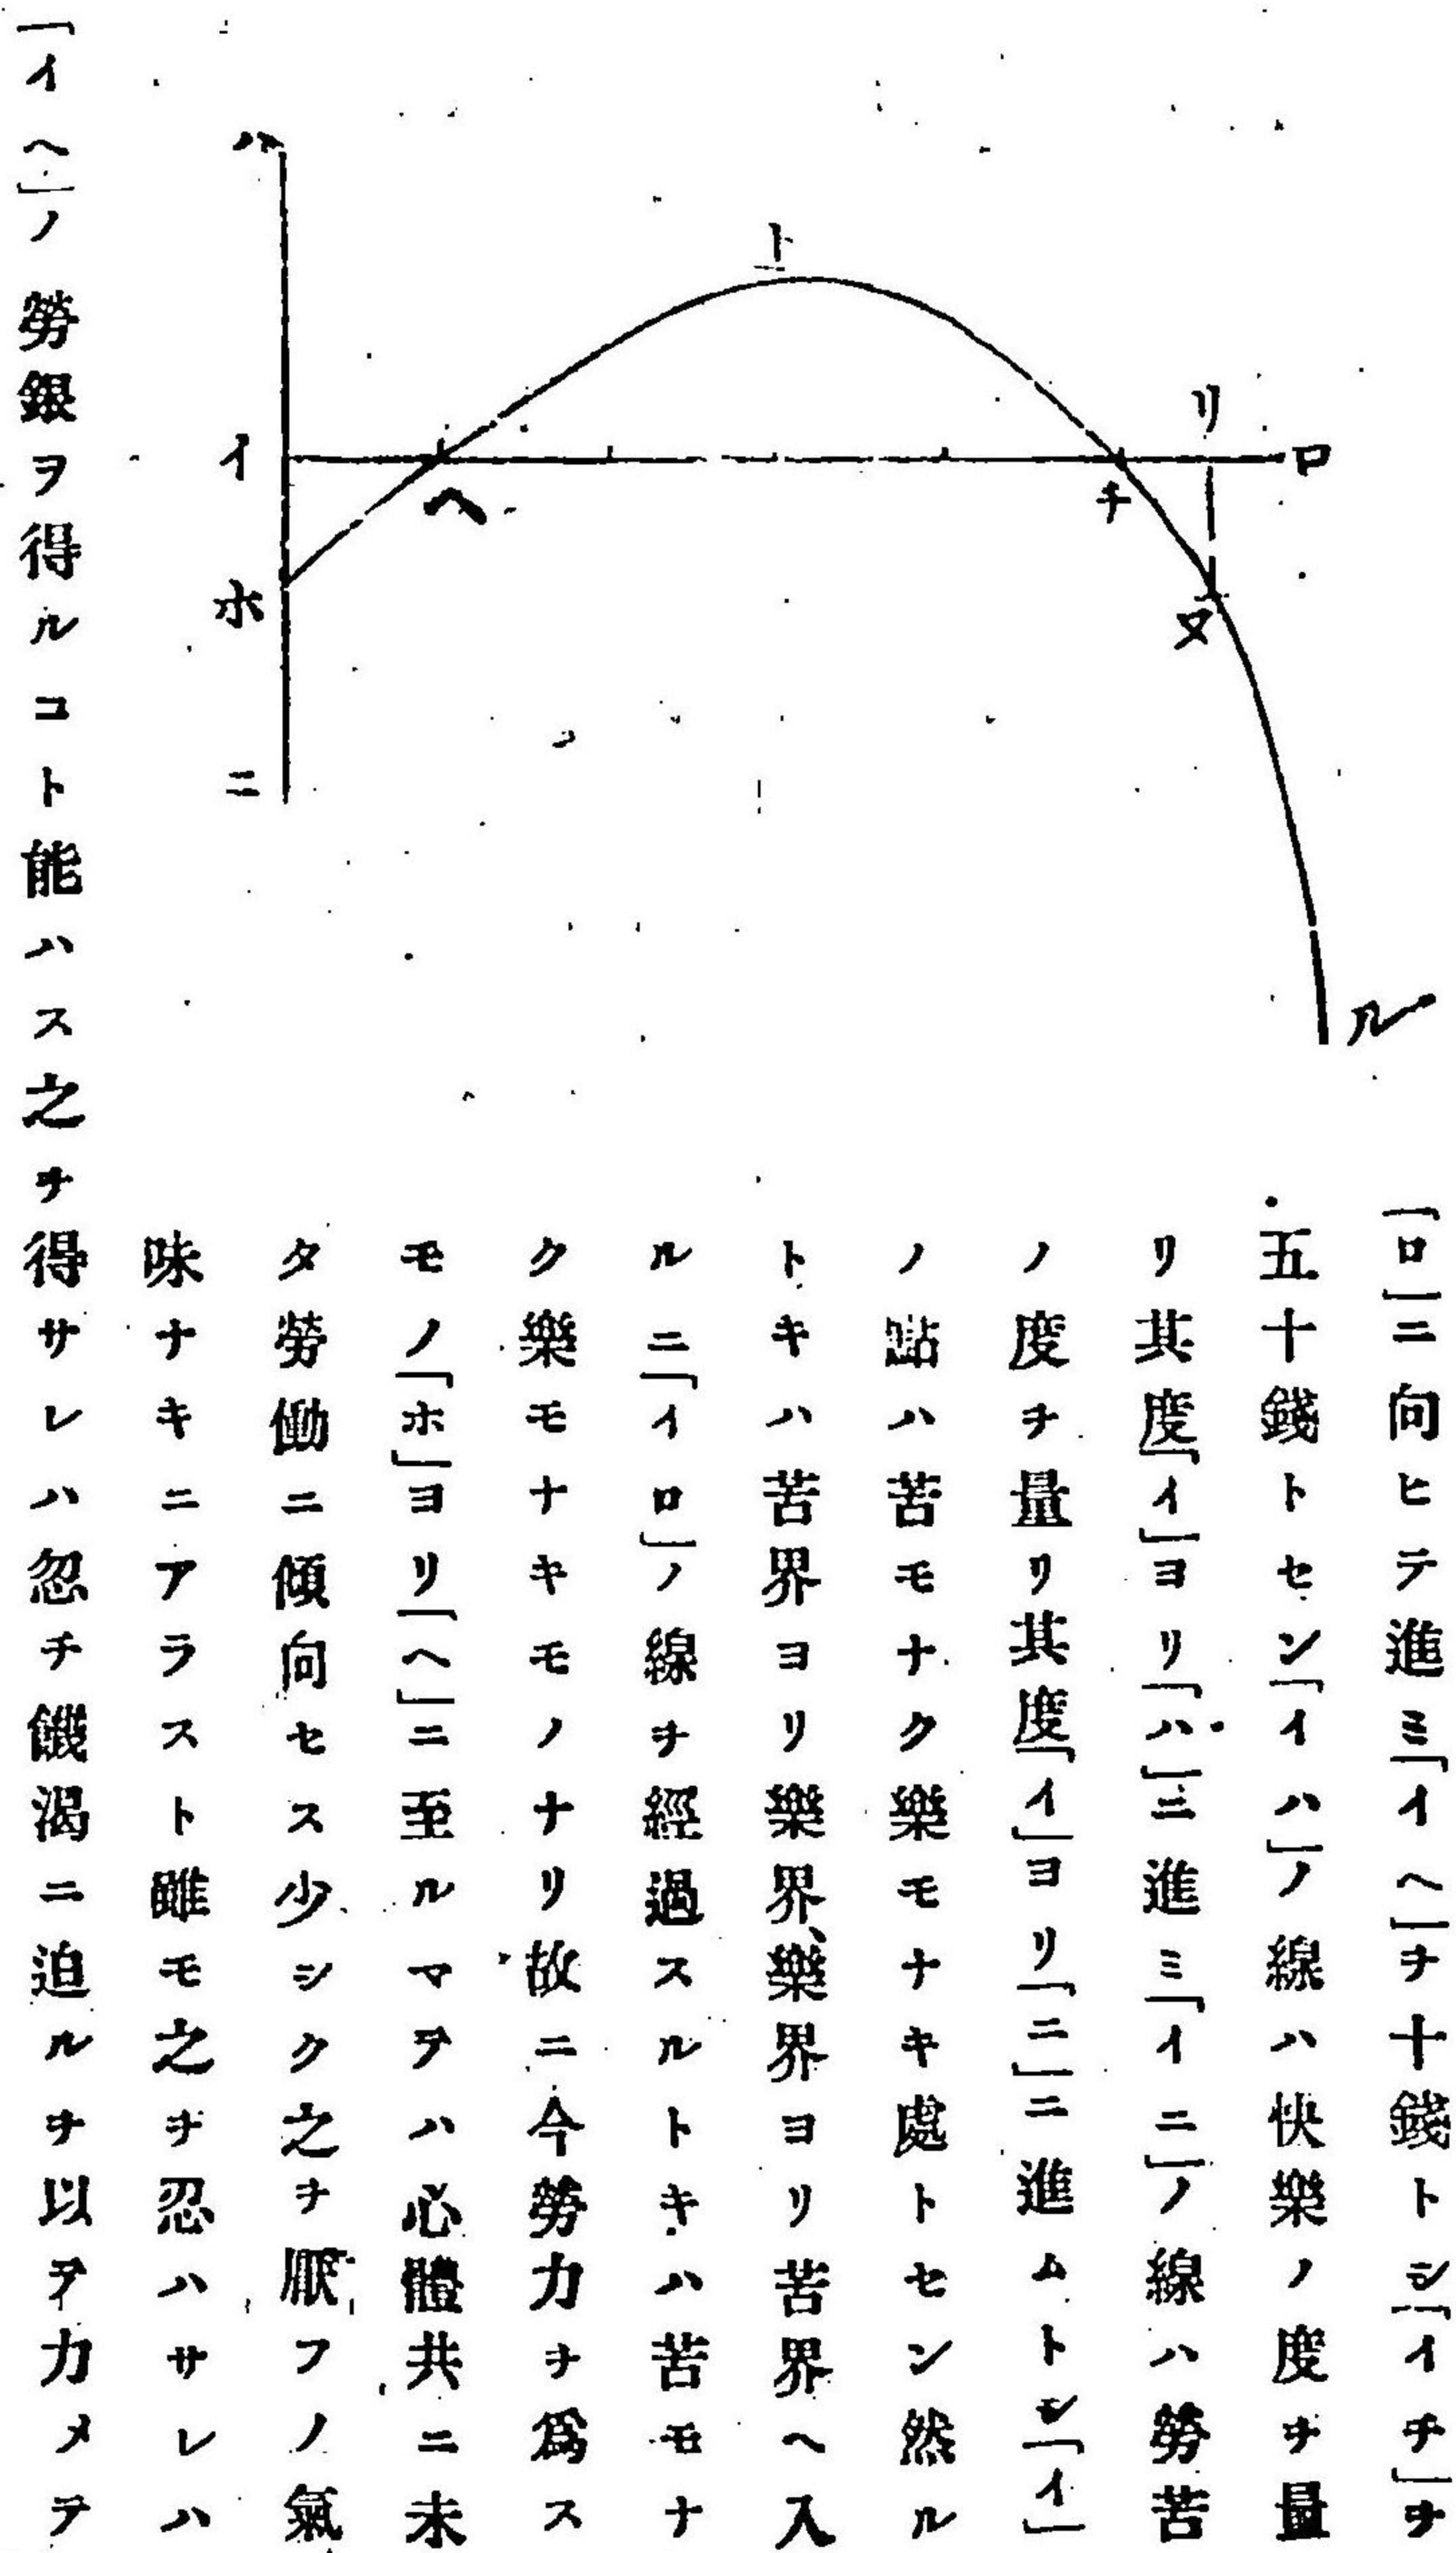 「ロ」ニ向ヒテ進ミ「イヘ」ヲ十錢トシ「イチ」ヲ
五十錢トセン「イハ」ノ線ハ快樂ノ度ヲ量
リ其度「イ」ヨリ「ハ」ニ進ミ「イニ」ノ線ハ勞苦
ノ度ヲ量リ其度「イ」ヨリ「ニ」ニ進ムトシ「イ」
ノ點ハ苦モナク樂モナキ處トセン然ル
トキハ苦界ヨリ樂界、樂界ヨリ苦界ヘ入
ルニ「イロ」ノ線ヲ經過スルトキハ苦モナ
ク樂モナキモノナリ故ニ今勞力ヲ爲ス
モノ「ホ」ヨリ「ヘ」ニ至ルマテハ心體共ニ未
タ勞働ニ傾向セス少シク之ヲ厭フノ氣
味ナキニアラスト雖モ之ヲ忍ハサレハ
「イヘ」ノ勞銀ヲ得ルコト能ハス之ヲ得サレハ忽チ饑渴ニ迫ルヲ以テ力メテ
ハ
ト
リ
イ
ロ
ヘ
チ
ホ
ヌ
ニ
ル